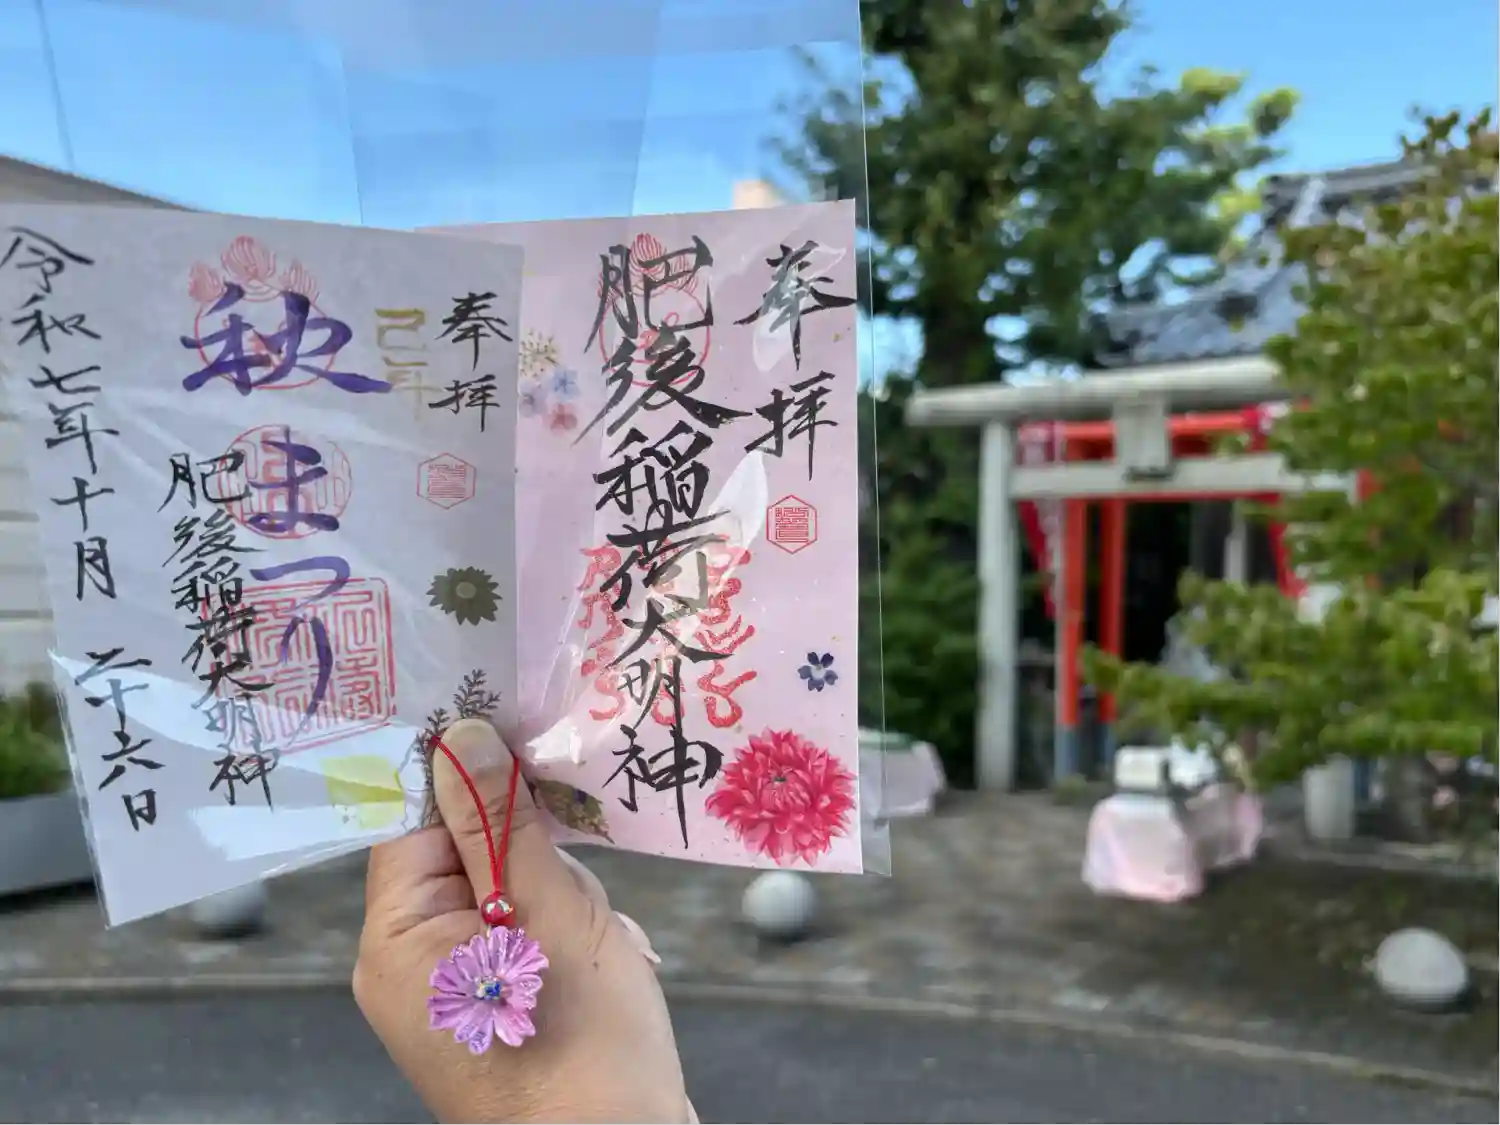 奉拝
肥後稲荷大明神
奉拝
己巳年
秋まつり
肥後稲荷大明神
令和七年十月二十六日